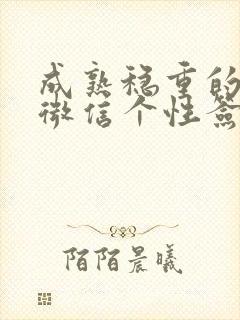 成熟稳重的
微信个性签
陌陌晨曦